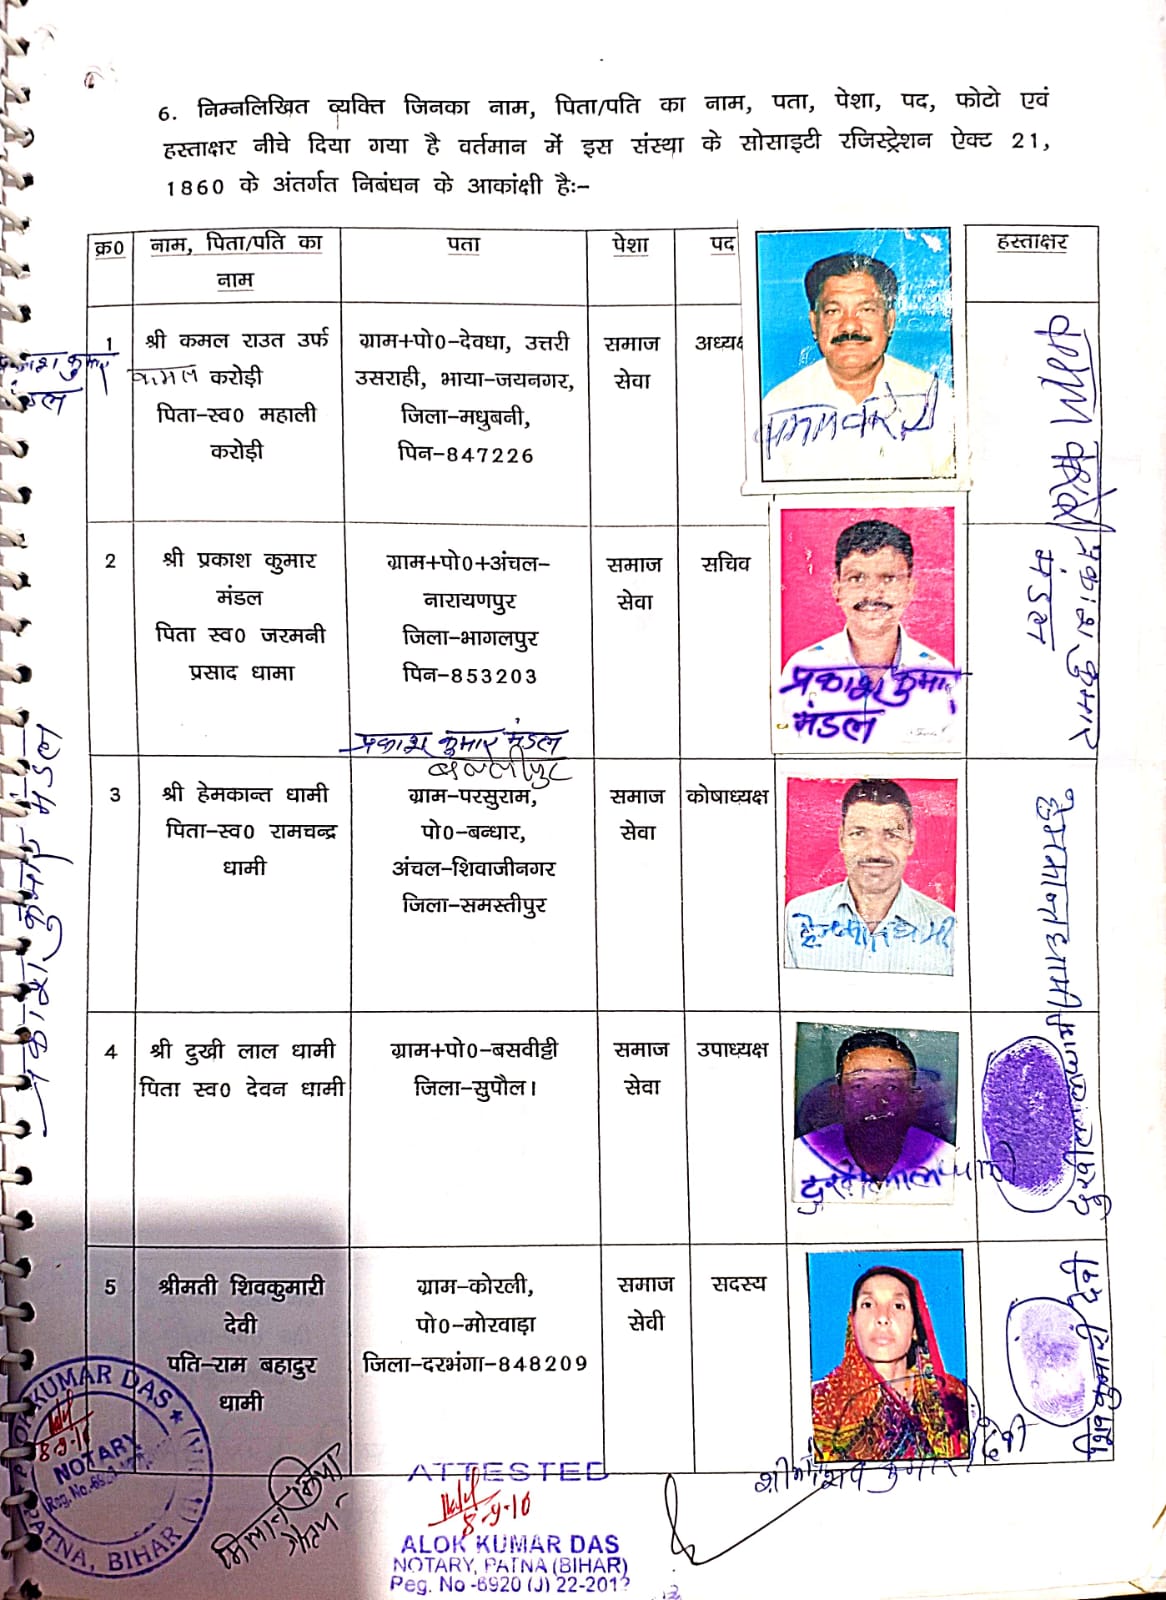 6. निम्नलिखित व्यक्ति जिनका नाम, पिता/पति का नाम, पता, पेशा, पद, फोटो एवं
हस्ताक्षर नीचे दिया गया है वर्तमान में इस संस्था के सोसाइटी रजिस्ट्रेशन ऐक्ट 21,
1860 के अंतर्गत निबंधन के आकांक्षी है:-
क्र0 नाम, पिता/पति का पता पेशा पद हस्ताक्षर
नाम
1 श्री कमल राउत उर्फ ग्राम+पो0-देवधा, उत्तरी समाज अध्यक्ष
कमल करोड़ी उसराही, भाया-जयनगर, सेवा
पिता-स्व0 महाली जिला-मधुबनी,
करोड़ी पिन-847226
प्रकाश कुमार
मंडल
कमल करोड़ी
कमल करोड़ी
2 श्री प्रकाश कुमार ग्राम+पो0+अंचल- समाज सचिव
मंडल नारायणपुर सेवा
पिता स्व0 जरमनी जिला-भागलपुर
प्रसाद धामा पिन-853203
प्रकाश कुमार
मंडल
प्रकाश कुमार
मंडल
प्रकाश कुमार मंडल
3 श्री हेमकान्त धामी ग्राम-परसुराम, समाज कोषाध्यक्ष
पिता-स्व0 रामचन्द्र पो0-बन्धार, सेवा
धामी अंचल-शिवाजीनगर
जिला-समस्तीपुर
हेमकान्त धामी
हेमकान्त धामी
प्रकाश कुमार मंडल
4 श्री दुखी लाल धामी ग्राम+पो0-बसवीट्टी समाज उपाध्यक्ष
पिता स्व0 देवन धामी जिला-सुपौल। सेवा
दुखीलाल धामी
दुखीलाल धामी
5 श्रीमती शिवकुमारी ग्राम-कोरली, समाज सदस्य
देवी पो0-मोरवाड़ा सेवी
पति-राम बहादुर जिला-दरभंगा-848209
धामी
शिव कुमारी देवी
श्रीमती शिव कुमारी देवी
ALOK KUMAR DAS
NOTARY
PATNA, BIHAR
8-9-16
ATTESTED
8-9-16
ALOK KUMAR DAS
NOTARY, PATNA (BIHAR)
Reg. No -6920 (J) 22-2012